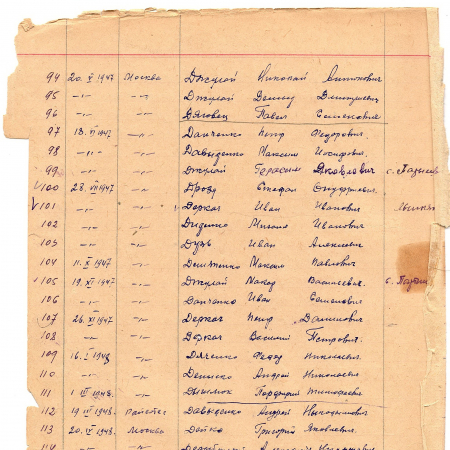 94 20. V 1947 Москва Джулой Николай Антонович
95 -"- -"- Джулой Демид Дмитриевич
96 -"- -"- Вяговец Павел Семенович
97 13. VI 1947 -"- Данченко Петр Федорович.
98 -"- -"- Давыденко Максим Иосифович.
99 -"- -"- Джулой Герасим Яковлевич с.
100 28. VII 1947 -"- Дрозд Степан Онуфриевич.
101 -"- -"- Деркач Иван Иванович
102 -"- -"- Диденко Михаил Иванович
103 -"- -"- Дузь Иван Алексеевич
104 11. X 1947 -"- Демиженко Максим Павлович
105 19. XI 1947 -"- Джулой Макар Васильевич. с.
106 -"- -"- Данченко Иван Семенович
107 26. XI 1947 -"- Деркач Петр Данилович
108 -"- -"- Деркач Василий Петрович.
109 16. I 1948 -"- Дяченко Федор Николаевич.
110 -"- -"- Андрей Николаевич
111 1. III 1948. -"- Дышлюк Порфирий Тимофеевич
112 19 III 1948. Давыденко Андрей
113 20. IV 1948. Москва Дейко Григорий Яковлевич.
114 -"- -"-